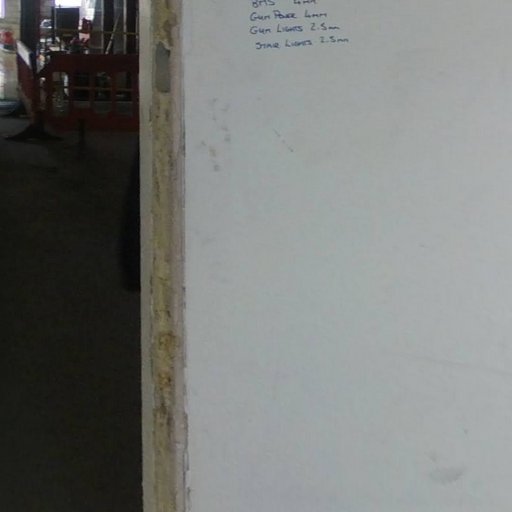 BMS 4mm
GYM POWER 4mm
GYM LIGHTS 2.5mm
STAIR LIGHTS 2.5mm